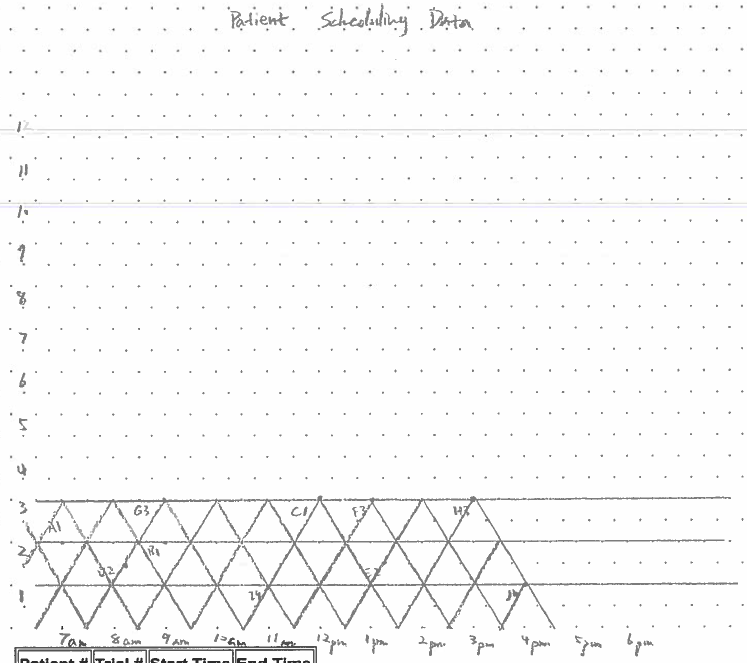 Patient Scheduling Data
12
11
10
9
8
7
6
5
4
3 G3 C1 F3 H3
A1
2 B1
D2 E2
1 J4
7am 8am 9am 10am 11am 12pm 1pm 2pm 3pm 4pm 5pm 6pm
Patient # Trial # Start Time End Time